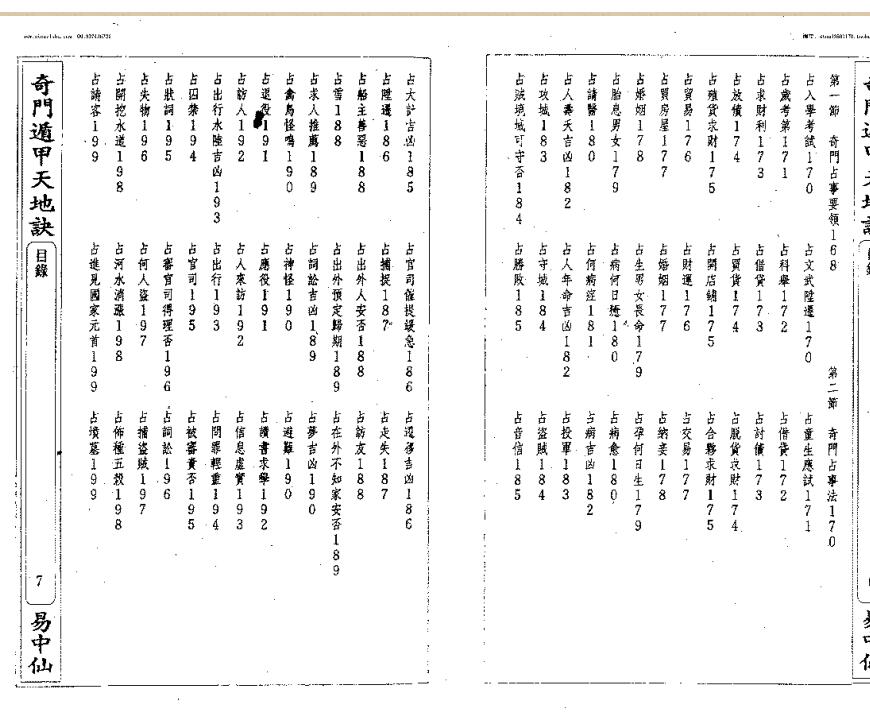 第一節 奇門占事要領168 第二節 奇門占事法170
占入學考試170 占文武陞遷170 占童生應試171
占歲考第171 占科舉172 占借貸172
占求財利173 占借貸173 占討債173
占放債174 占買貨174 占脫貨求財174
占殖貨求財175 占開店鋪175 占合夥求財175
占貿易176 占財運176 占交易177
占買房屋177 占婚姻177 占納妾178
占婚姻178 占生男女長命179 占孕何日生179
占胎息男女179 占病何日癒180 占病愈180
占請醫180 占何病症181 占病吉凶182
占人壽夭吉凶182 占人年命吉凶182 占投軍183
占攻城183 占守城184 占盜賊184
占賊境城可守否184 占勝敗185 占音信185
占大計吉凶185 占官司催提緩急186 占遷移吉凶186
占陞遷186 占捕捉187 占走失187
占船主善惡188 占出外人安否188 占訪友188
占雪188 占出外預定歸期189 占在外不知家安否189
占求人推薦189 占詞訟吉凶189 占夢吉凶190
占禽鳥怪鳴190 占神怪190 占避難190
占退役191 占應役191 占讀書求學192
占訪人192 占人來訪192 占信息虛實193
占出行水陸吉凶193 占出行193 占問罪輕重194
占囚禁194 占官司195 占被審責否195
占狀詞195 占審官司得理否196 占詞訟196
占失物196 占何人盜197 占捕盜賊197
占開挖水道198 占河水消漲198 占佈種五穀198
占請客199 占進見國家元首199 占墳墓199
奇門遁甲天地訣
目錄
7
易中仙